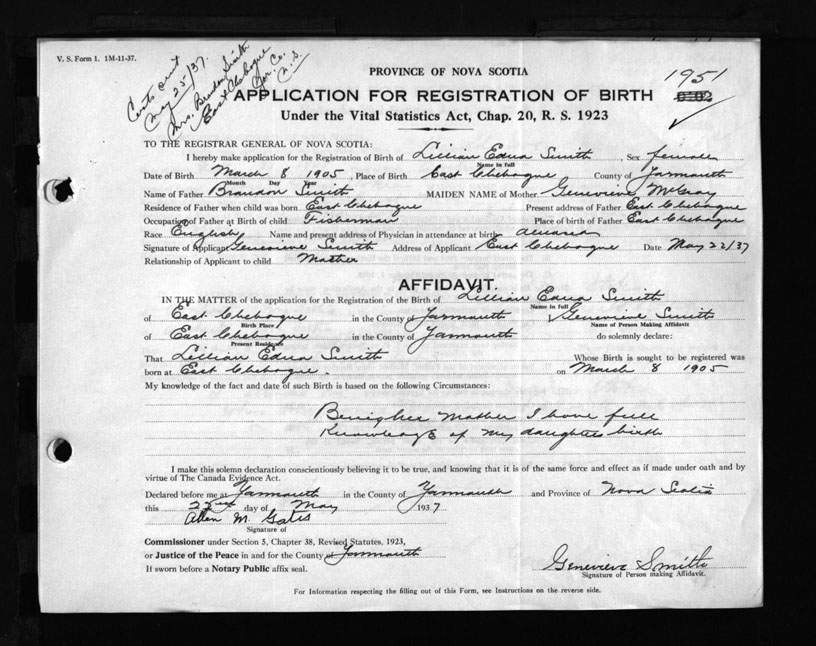 V. S. Form 1. 1M-11-37.
May 25/37.
Mrs. Brandon Smith
East Chebogue
Yar. Co.
N. S.
1951
PROVINCE OF NOVA SCOTIA
APPLICATION FOR REGISTRATION OF BIRTH
Under the Vital Statistics Act, Chap. 20, R. S. 1923
TO THE REGISTRAR GENERAL OF NOVA SCOTIA:
I hereby make application for the Registration of Birth of Lillian Edna Smith Sex female
Name in full
Date of Birth March 8 1905, Place of Birth East Chebogue County of Yarmouth
Month Day Year
Name of Father Brandon Smith MAIDEN NAME of Mother Genevieve McGray
Residence of Father when child was born East Chebogue Present address of Father East Chebogue
Occupation of Father at Birth of child Fisherman Place of birth of Father East Chebogue
Race English Name and present address of Physician in attendance at birth
Signature of Applicant Genevieve Smith Address of Applicant East Chebogue Date May 22/37
Relationship of Applicant to child Mother
AFFIDAVIT.
IN THE MATTER of the application for the Registration of the Birth of Lillian Edna Smith
Name in full
of East Chebogue in the County of Yarmouth Genevieve Smith
Birth Place Name of Person Making Affidavit
of East Chebogue in the County of Yarmouth do solemnly declare:
Present Residence
That Lillian Edna Smith Whose Birth is sought to be registered was
born at East Chebogue. on March 8 1905
My knowledge of the fact and date of such Birth is based on the following Circumstances:
Being her Mother I have full
Knowledge of my daughters birth
I make this solemn declaration conscientiously believing it to be true, and knowing that it is of the same force and effect as if made under oath and by
virtue of The Canada Evidence Act.
Declared before me at Yarmouth in the County of Yarmouth and Province of Nova Scotia
this 22nd day of May 1937
Allen M. Gates
Signature of
Commissioner under Section 5, Chapter 38, Revised Statutes, 1923,
or Justice of the Peace in and for the County of Yarmouth
If sworn before a Notary Public affix seal.
Genevieve Smith
Signature of Person making Affidavit.
For Information respecting the filling out of this Form, see Instructions on the reverse side.